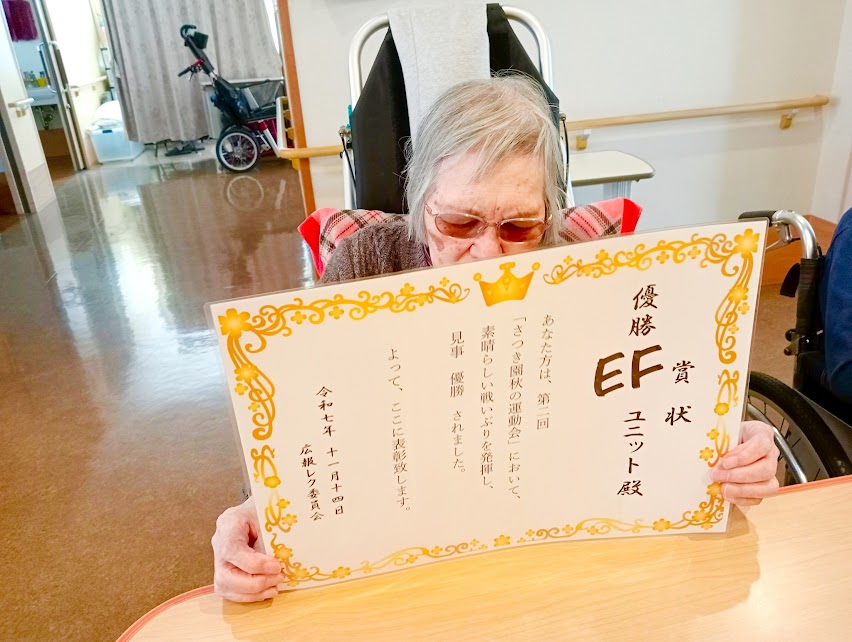 賞状
優勝
EFユニット殿
あなた方は、第二回
「さつき園秋の運動会」において、
素晴らしい戦いぶりを発揮し、
見事 優勝 されました。
よって、ここに表彰致します。
令和七年 十一月十四日
広報レク委員会